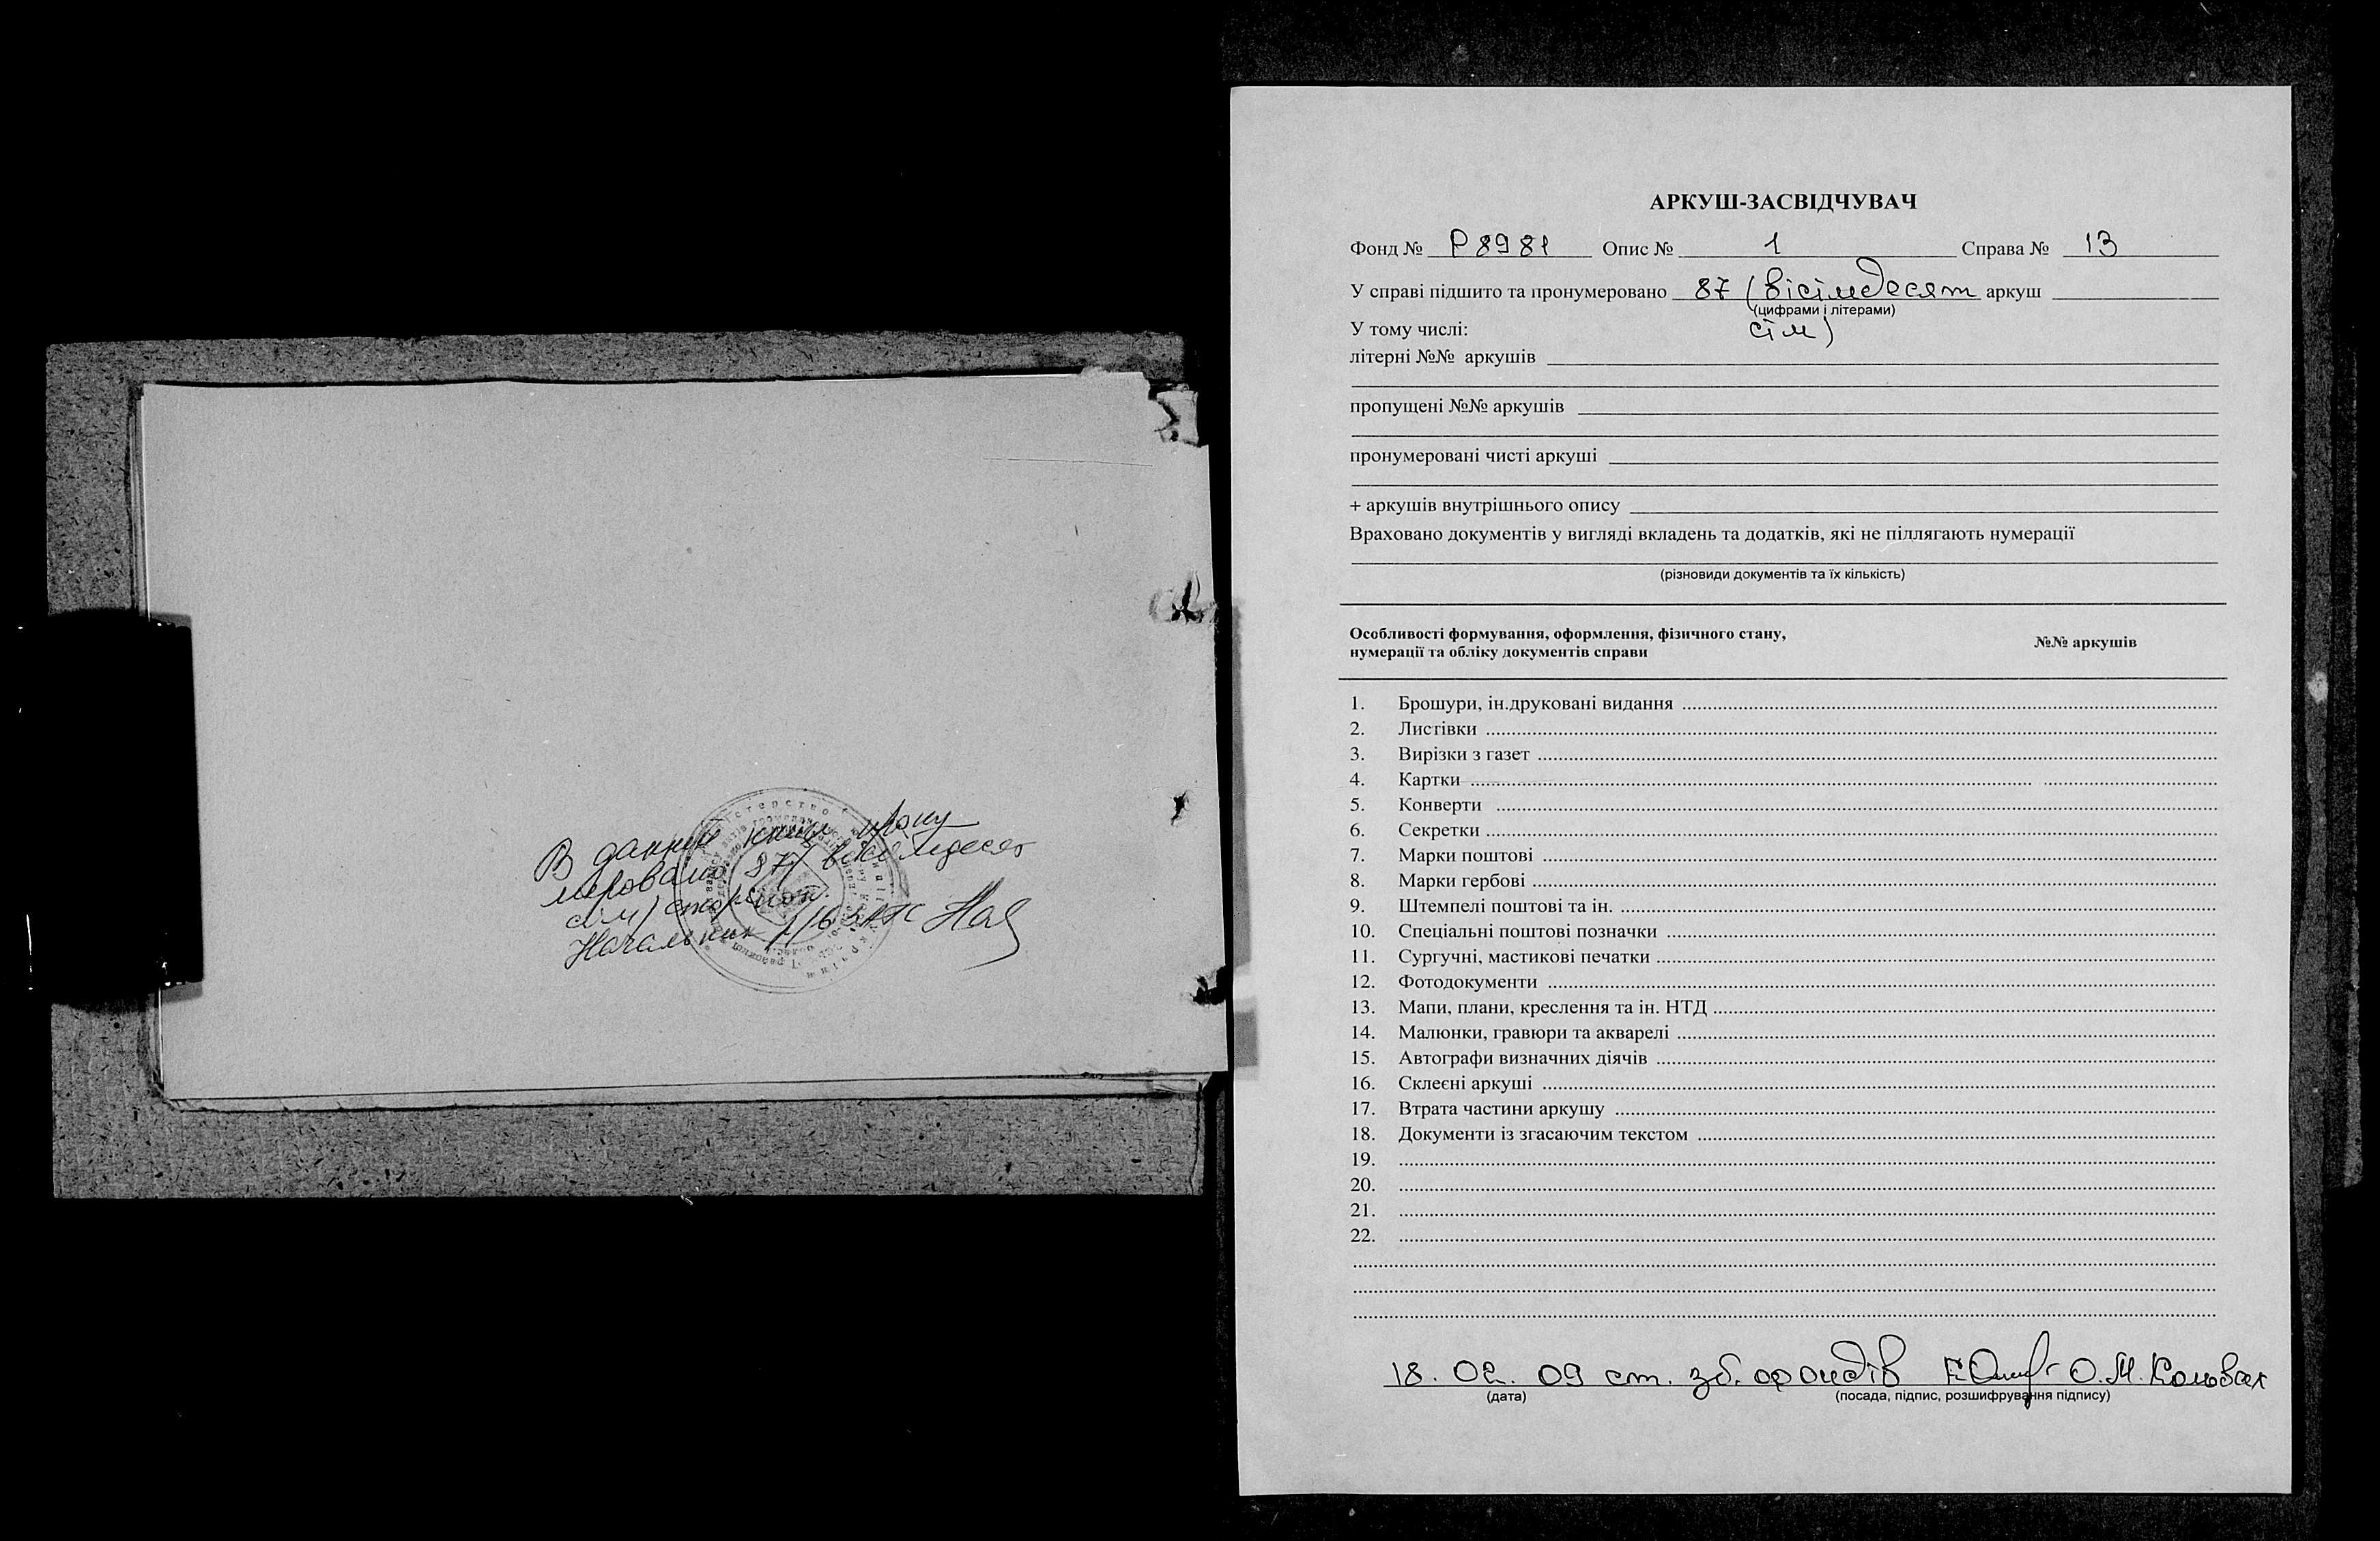 В данній книзі прону
меровано 87 / вісімдесят
сім) сторінок.
Начальник
АРКУШ-ЗАСВІДЧУВАЧ
Фонд № Р 8981 Опис № 1 Справа № 13
У справі підшито та пронумеровано 87 (вісімдесят аркуш
(цифрами і літерами)
У тому числі: сім)
літерні №№ аркушів
пропущені №№ аркушів
пронумеровані чисті аркуші
+ аркушів внутрішнього опису
Враховано документів у вигляді вкладень та додатків, які не підлягають нумерації
(різновиди документів та їх кількість)
Особливості формування, оформлення, фізичного стану,
нумерації та обліку документів справи №№ аркушів
1. Брошури, ін.друковані видання
2. Листівки
3. Вирізки з газет
4. Картки
5. Конверти
6. Секретки
7. Марки поштові
8. Марки гербові
9. Штемпелі поштові та ін.
10. Спеціальні поштові позначки
11. Сургучні, мастикові печатки
12. Фотодокументи
13. Мапи, плани, креслення та ін. НТД
14. Малюнки, гравюри та акварелі
15. Автографи визначних діячів
16. Склеєні аркуші
17. Втрата частини аркушу
18. Документи із згасаючим текстом
19.
20.
21.
22.
18. 02. 09 ст. зб. фондів О.М. Ковбах
(дата) (посада, підпис, розшифрування підпису)